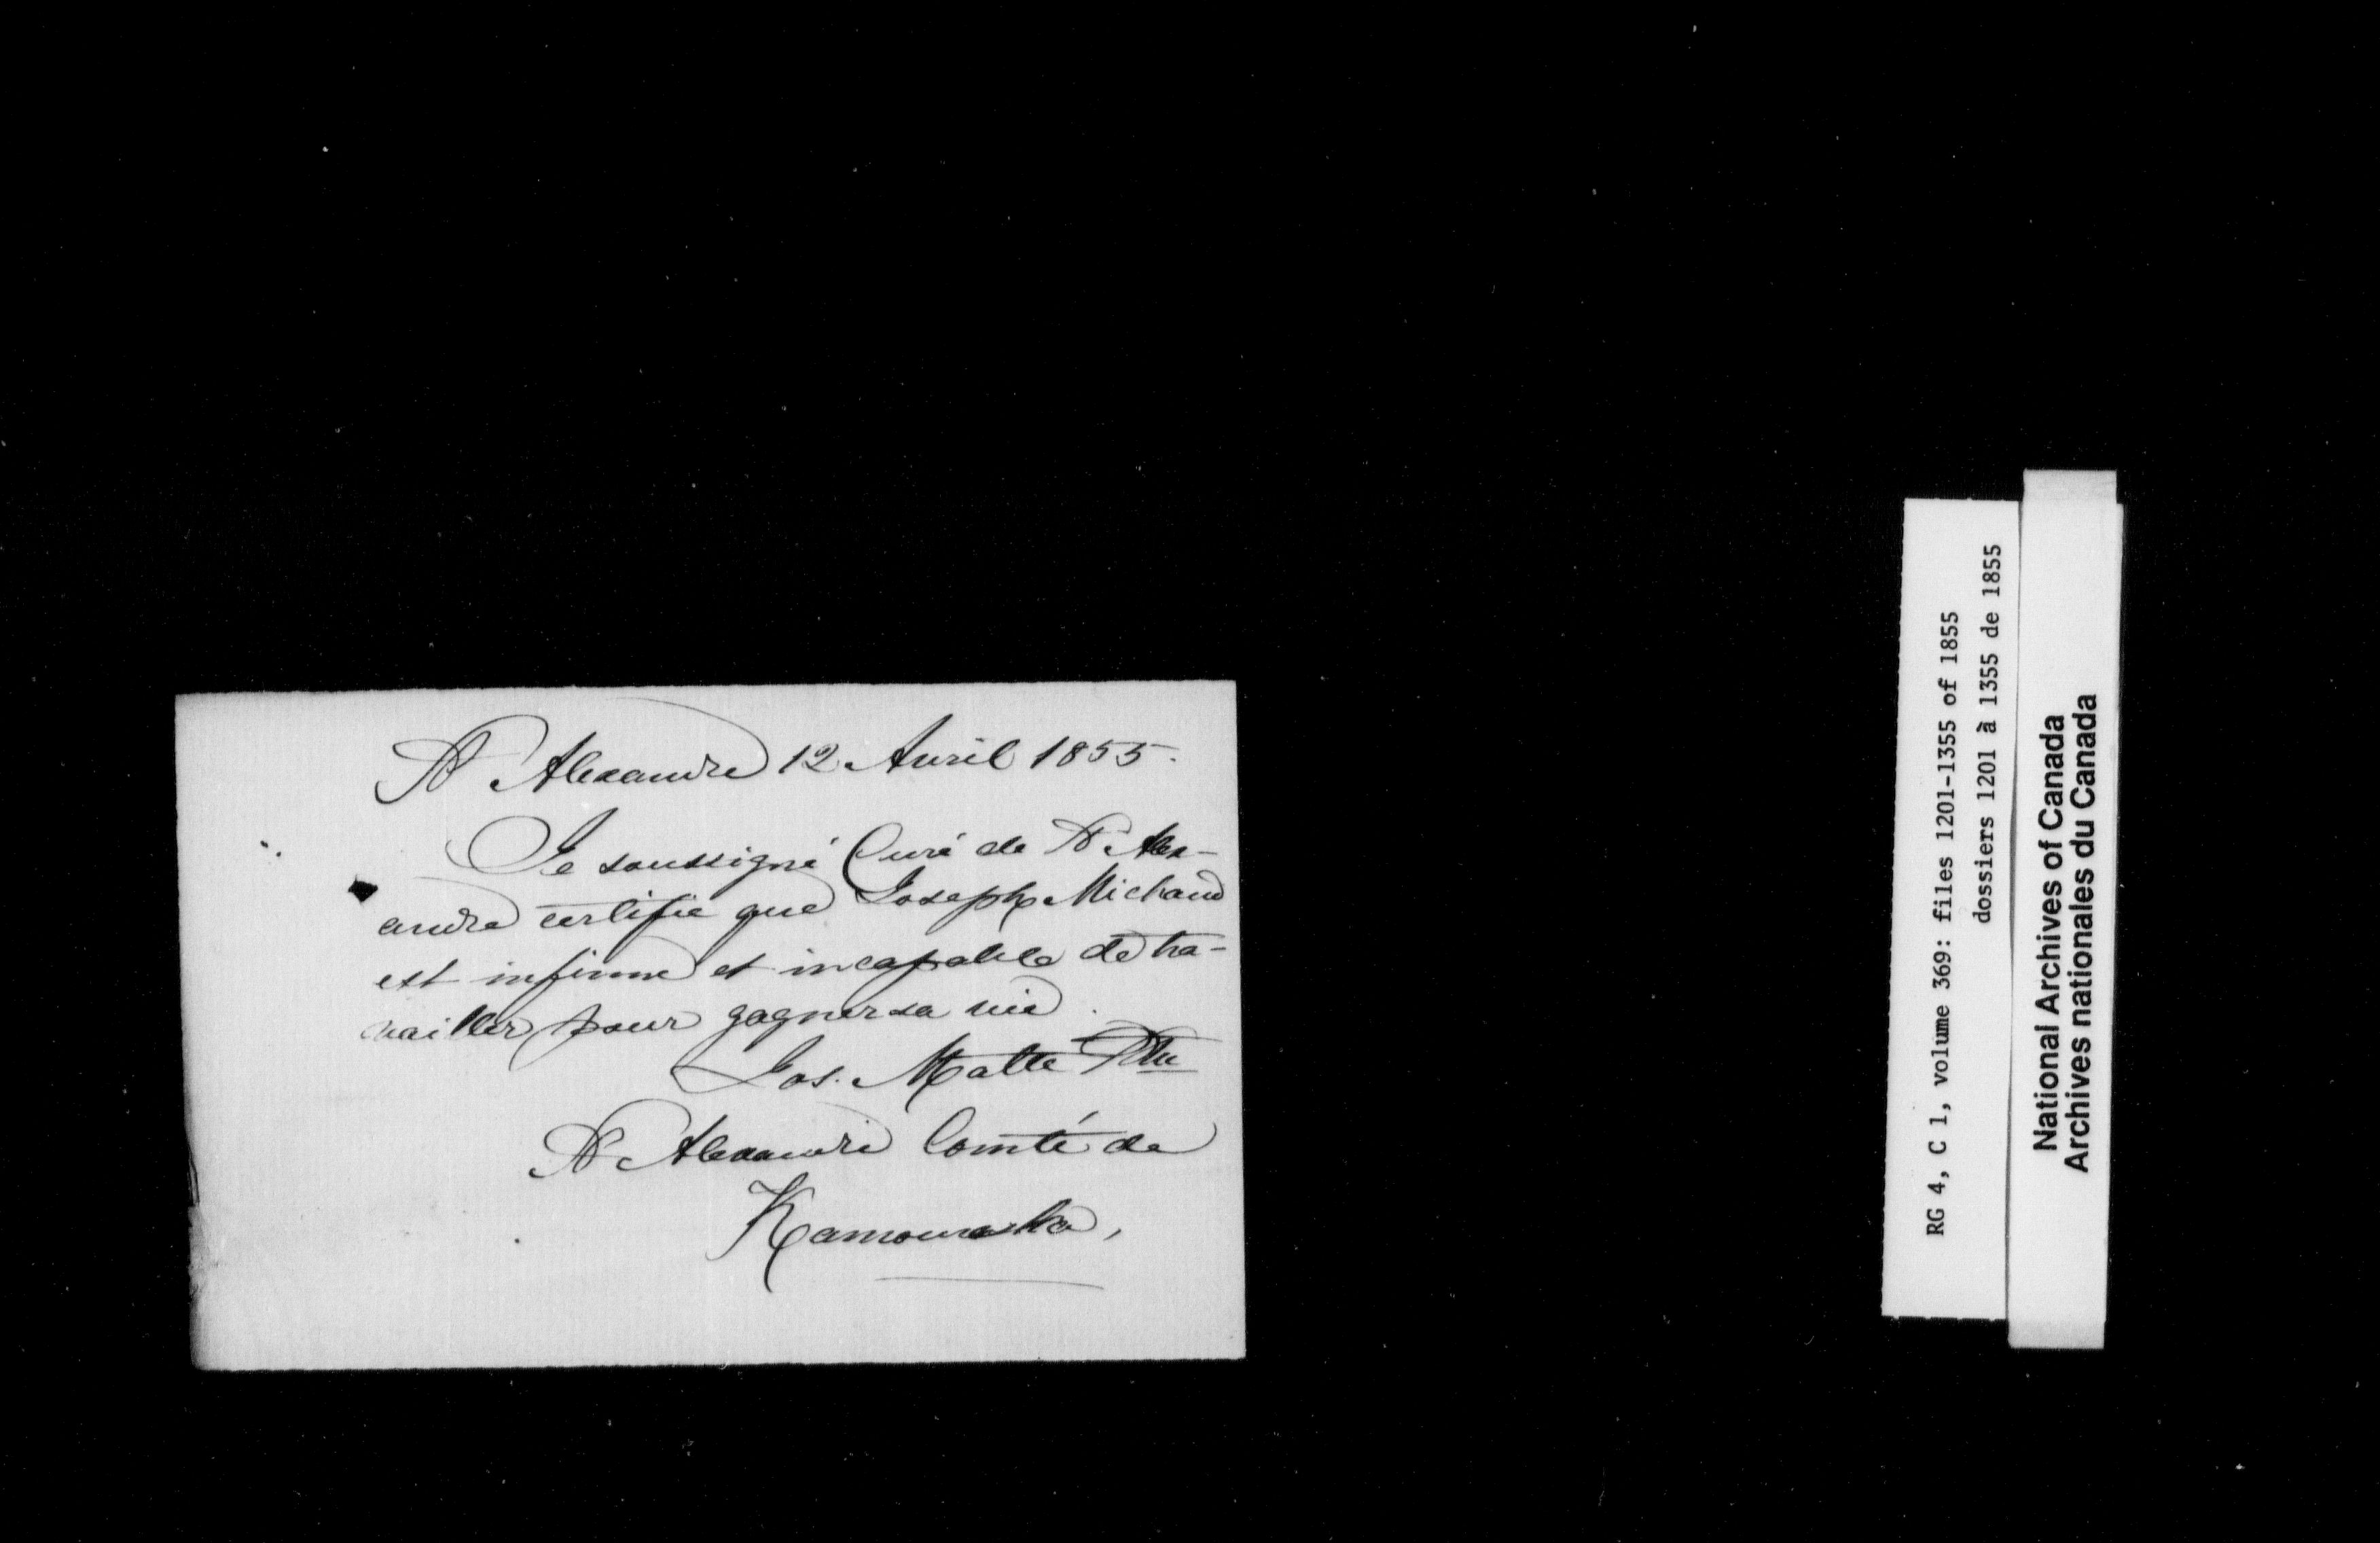 St Alexandre 12 Avril 1855.
Je soussigné Curé de St Alex-
andre certifie que Joseph Michaud
est infirme et incapable de tra-
vailler pour gagner sa vie.
Jos. Matte Ptre
St Alexandre Comté de
Kamouraska,
RG 4, C 1, volume 369: files 1201-1355 of 1855
dossiers 1201 à 1355 de 1855
National Archives of Canada
Archives nationales du Canada